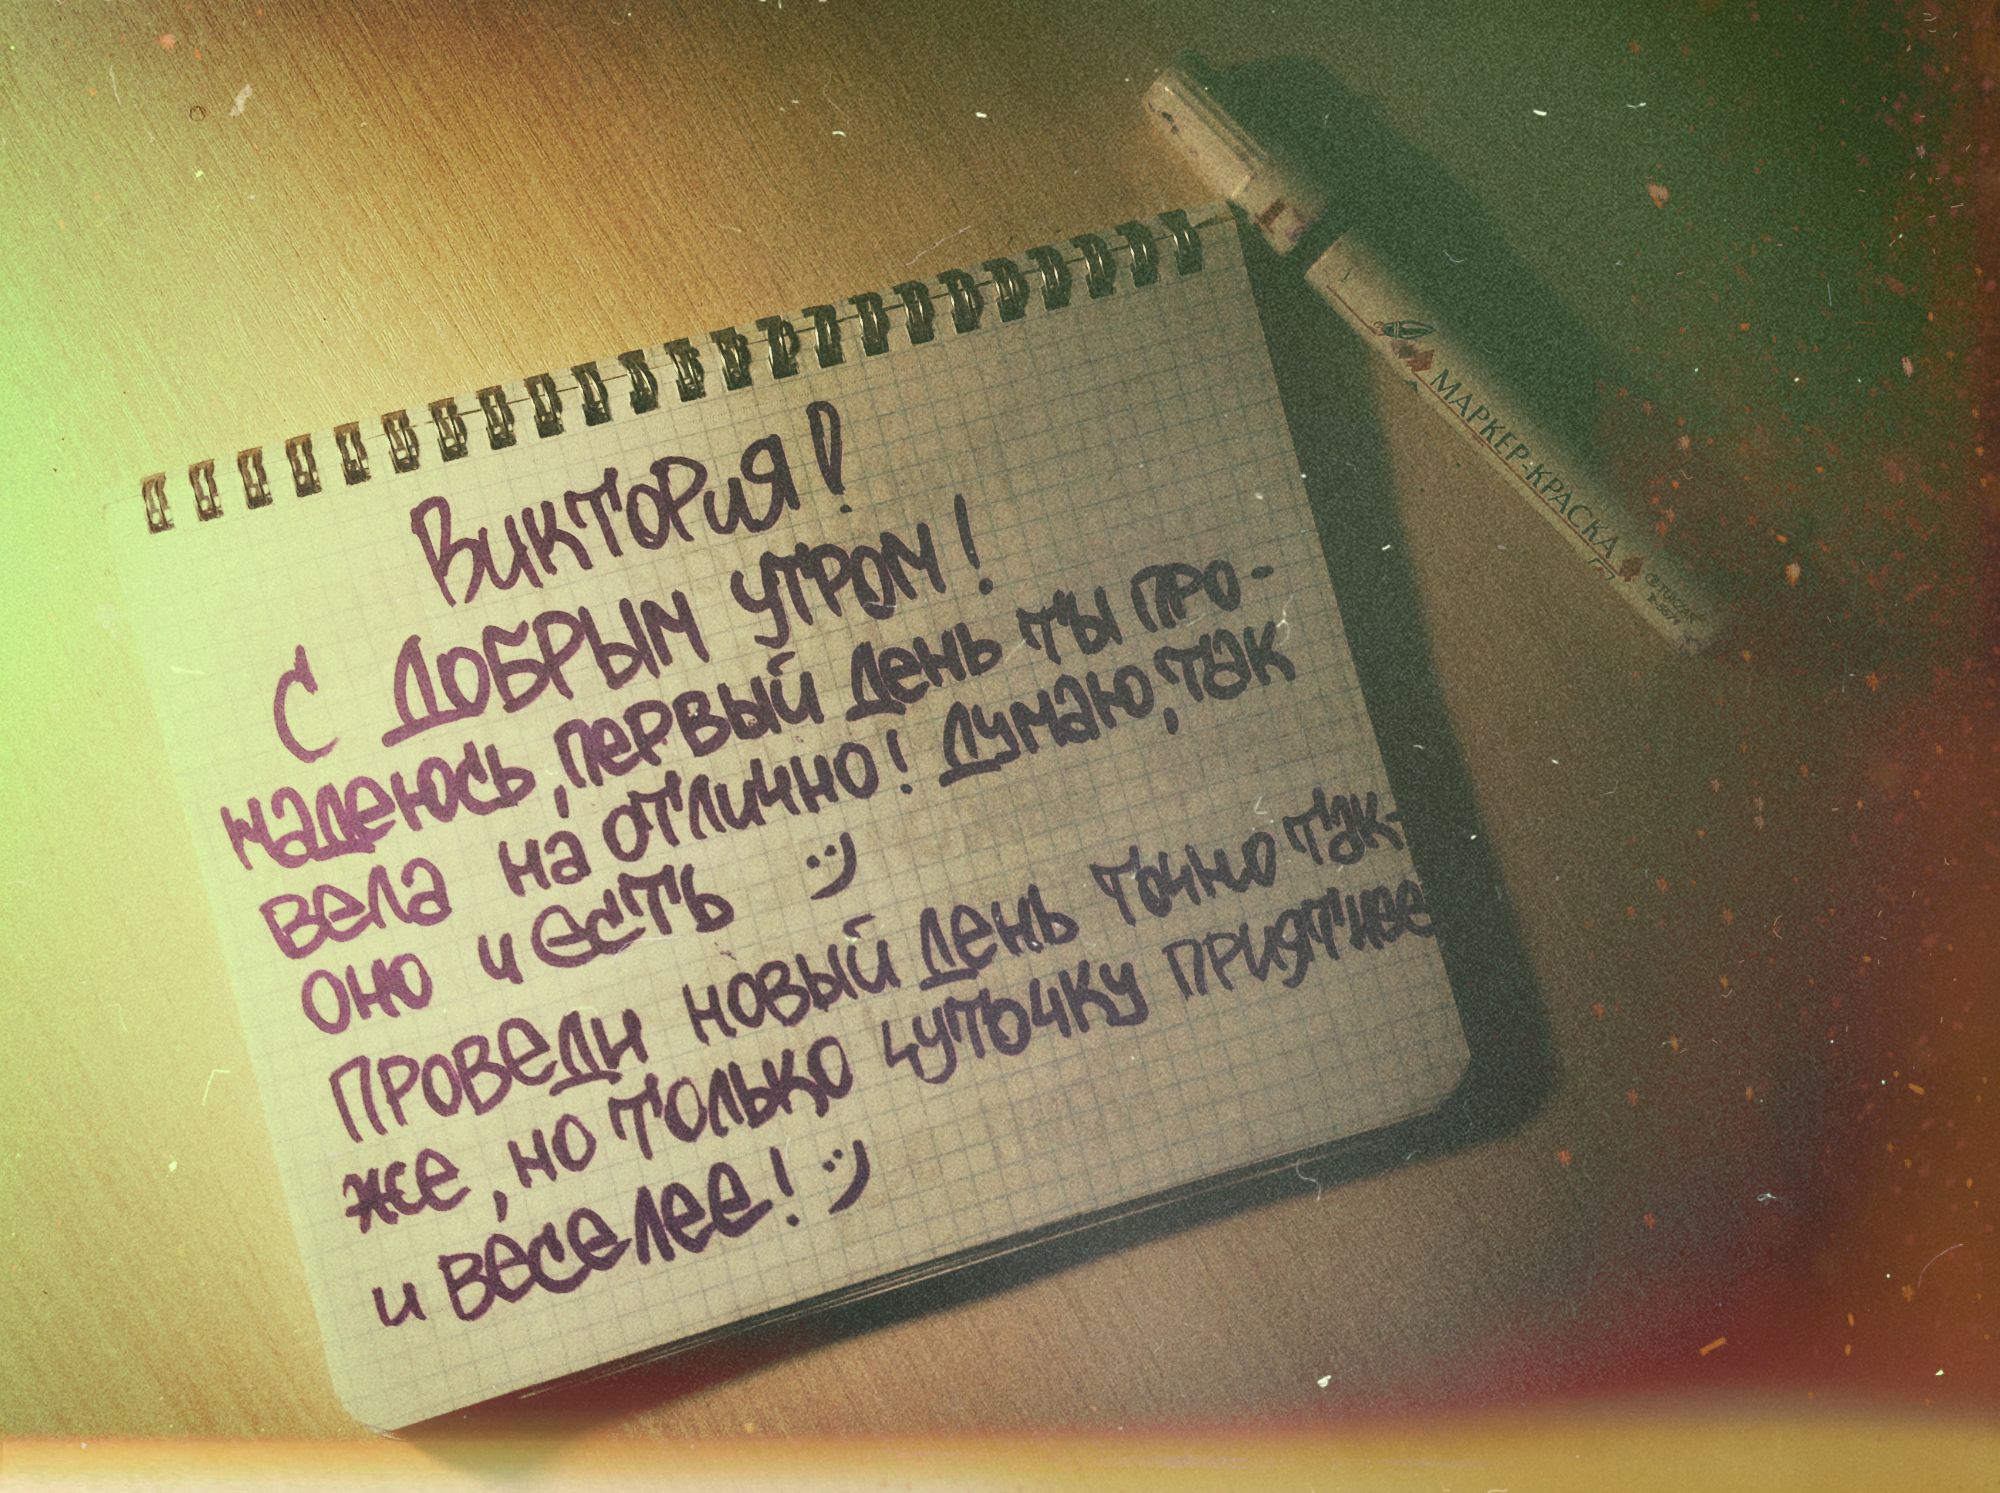 Виктория!
С добрым утром!
Надеюсь, первый день ты про-
вела на отлично! Думаю, так
оно и есть :)
Проведи новый день точно так-
же, но только чуточку приятнее
и веселее! :)
МАРКЕР-КРАСКА